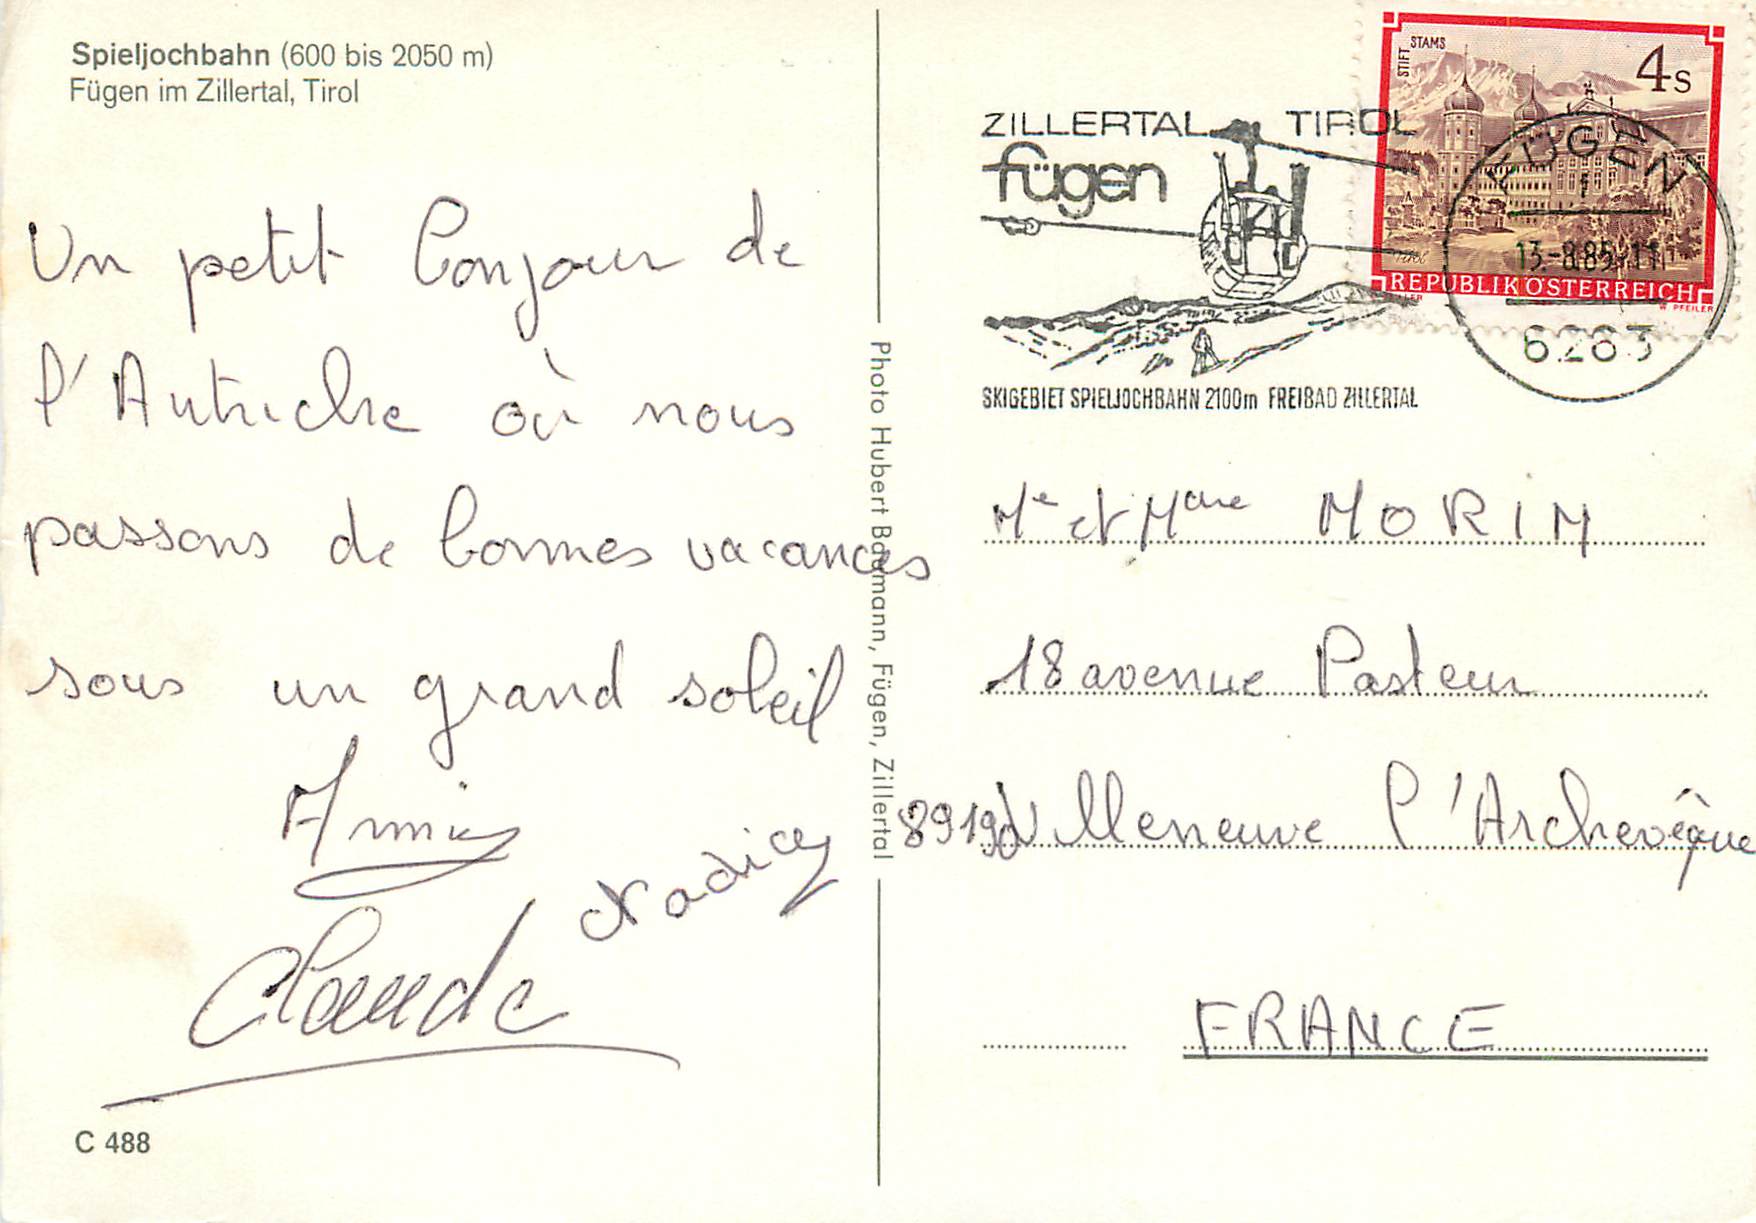 Spieljochbahn (600 bis 2050 m)
Fügen im Zillertal, Tirol
Un petit bonjour de
l'Autriche où nous
passons de bonnes vacances
sous un grand soleil
Claude
C 488
Photo Hubert Baumann, Fügen, Zillertal
ZILLERTAL TIROL
fügen
SKIGEBIET SPIELJOCHBAHN 2100m FREIBAD ZILLERTAL
STIFT STAMS
4S
REPUBLIK ÖSTERREICH
W. PFEILER
FÜGEN
13.-8.85-11
6283
Mr et Mme MORIN
18 avenue Pasteur
89190 Villeneuve l'Archevêque
FRANCE